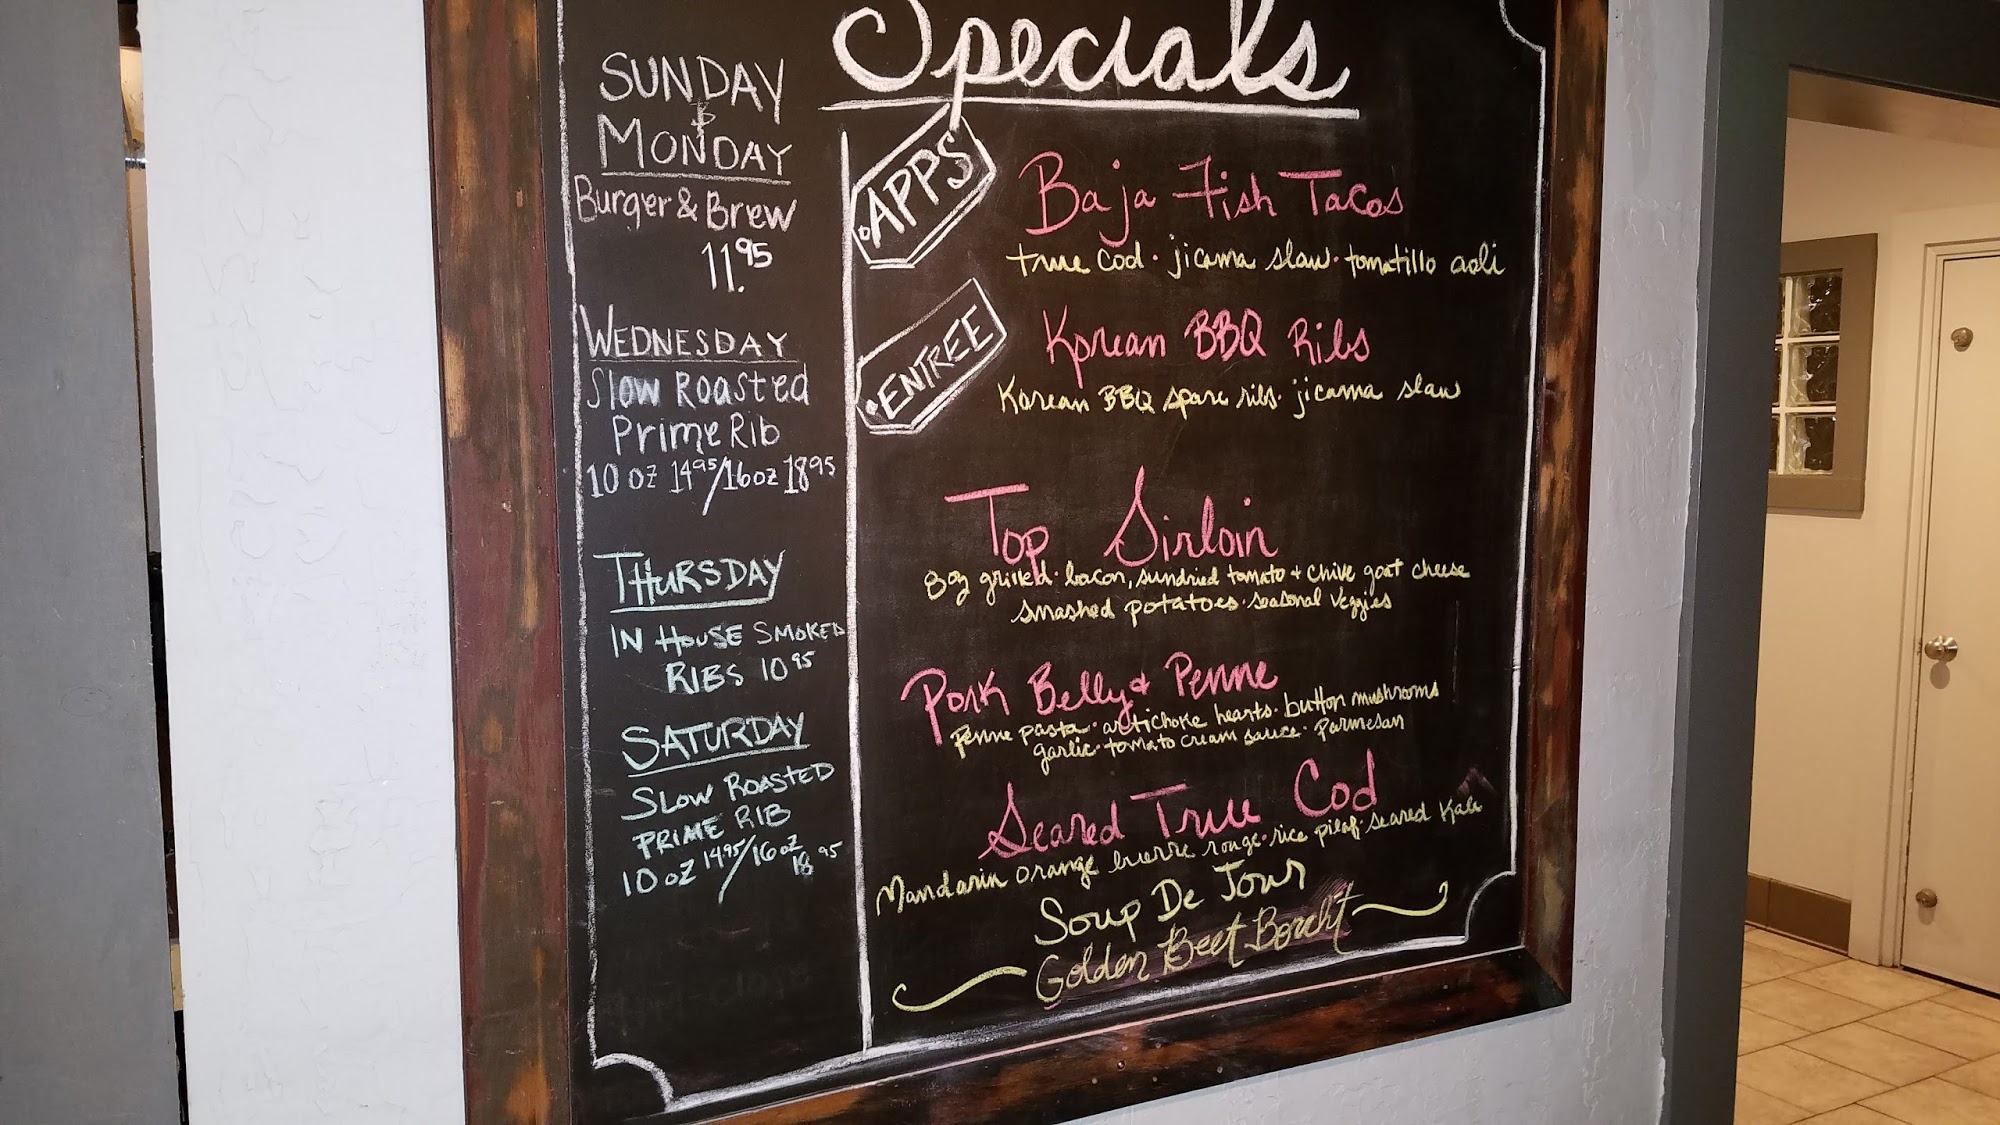 Specials
SUNDAY
&
MONDAY
Burger & Brew
11.95
WEDNESDAY
Slow Roasted
Prime Rib
10 oz 14 95/16 oz 18 95
THURSDAY
IN HOUSE SMOKED
RIBS 10 95
SATURDAY
SLOW ROASTED
PRIME RIB
10 oz 14 95/16 oz
18 95
APPS
Baja Fish Tacos
true cod · jicama slaw · tomatillo aoli
ENTREE
Korean BBQ Ribs
Korean BBQ spare ribs · jicama slaw
Top Sirloin
8oz grilled · bacon, sundried tomato + chive goat cheese
smashed potatoes · seasonal veggies
Pork Belly & Penne
penne pasta · artichoke hearts · button mushrooms
garlic · tomato cream sauce · parmesan
Seared True Cod
Mandarin orange buerre rouge · rice pilaf · seared kale
Soup De Jour
Golden Beet Borcht